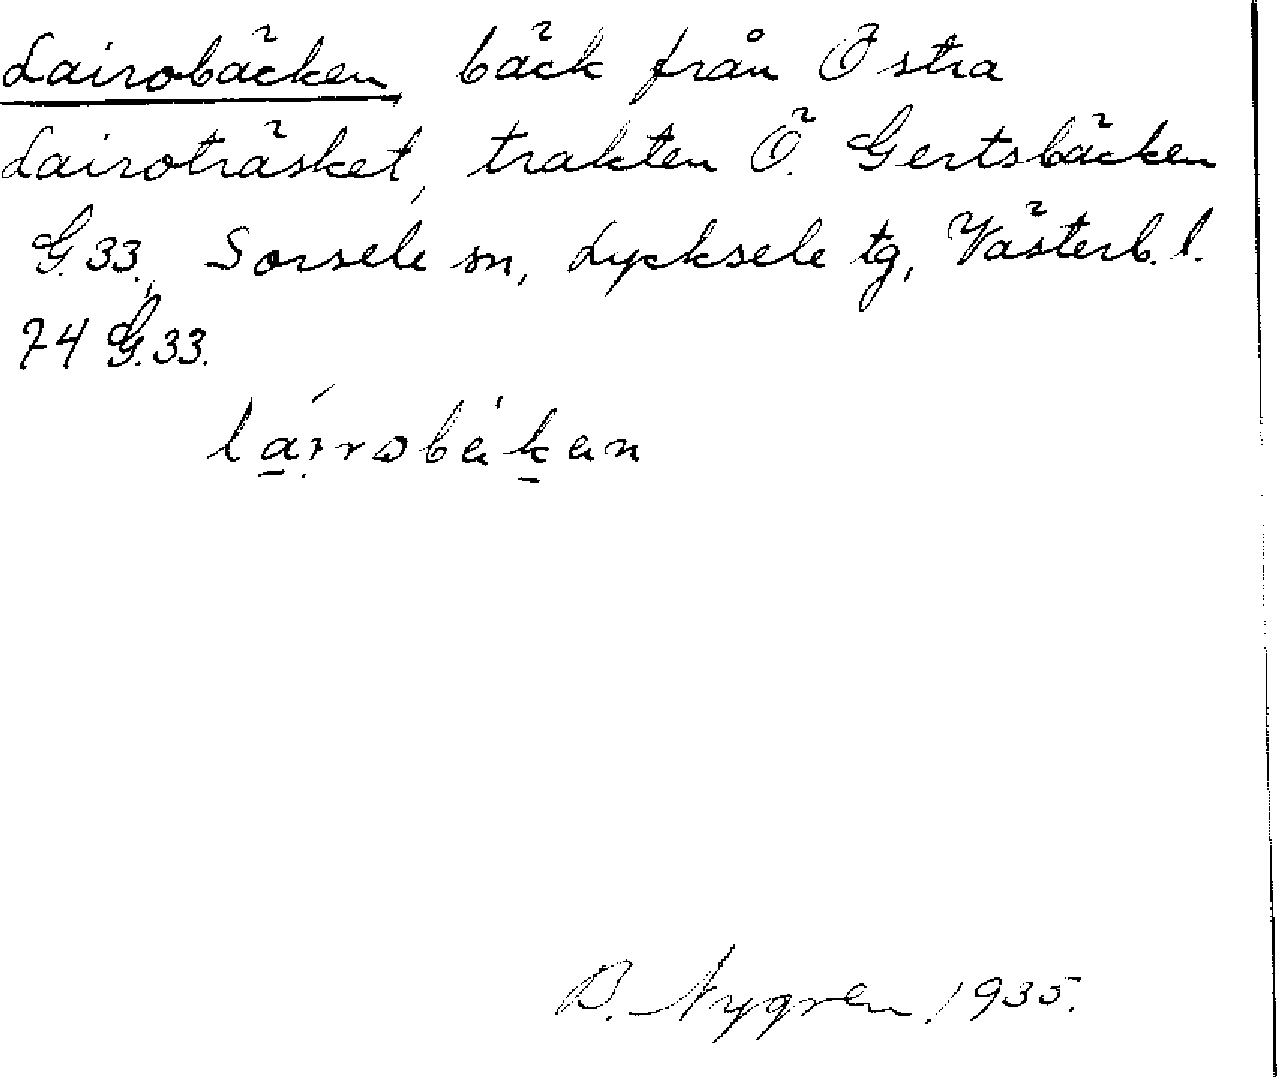 Lairobäcken bäck från Östra
Lairoträsket, trakten Ö. Gertsbäcken
G.33., Sorsele sn, Lycksele tg, Västerb. l.
74 G.33.
B. Nygren 1935.